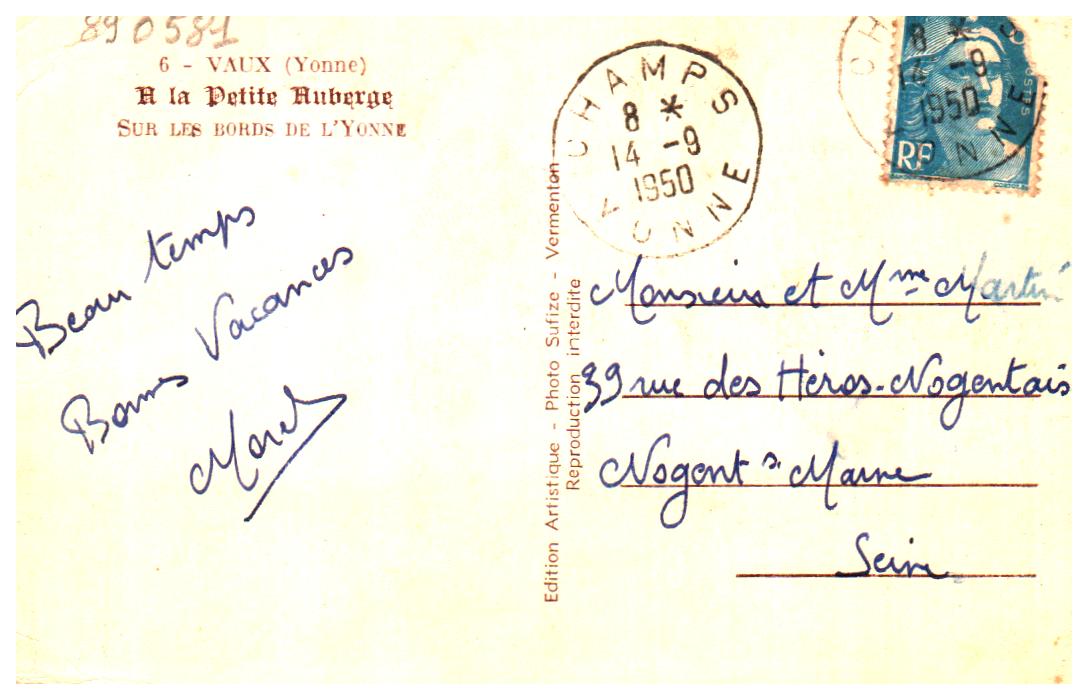 890581
6 - VAUX (Yonne)
A la Petite Auberge
SUR LES BORDS DE L'YONNE
Beau temps
Bonnes Vacances
Morel
Edition Artistique - Photo Sufize - Vermenton
Reproduction interdite
CHAMPS
8 *
14 -9
1950
YONNE
CH S
8 *
14 -9
1950
NNE
POSTES
RF
Monsieur et Mme Martin
39 rue des Héros-Nogentais
Nogent s. Marne
Seine